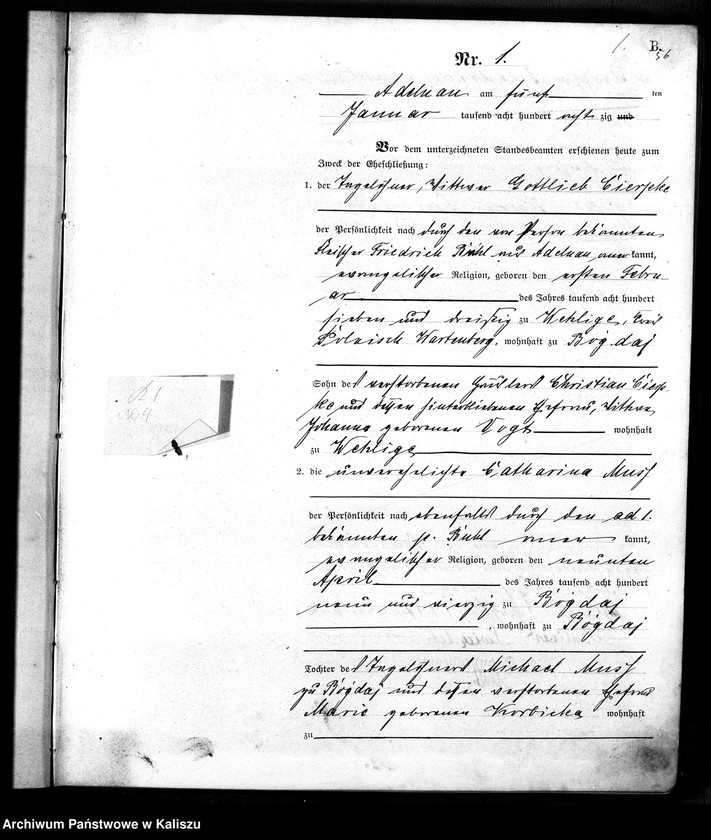 1. B.
56
Nr. 1.
Adelnau am fünf ten
Januar tausend acht hundert acht zig und
Vor dem unterzeichneten Standesbeamten erschienen heute zum
Zweck der Eheschließung:
1. der Tagelöhner, Wittwer Gottlieb Cierpke
der Persönlichkeit nach durch den von Person bekannten
Fleischer Friedrich Kuhl aus Adelnau aner kannt,
evangelischer Religion, geboren den ersten Febru-
ar des Jahres tausend acht hundert
sieben und dreißig zu Wehlige, Kreis
Polnisch Wartenberg, wohnhaft zu Bogdaj
Sohn des verstorbenen Häuslers Christian Cierp
ke und dessen hinterbliebenen Ehefrau, Wittwe,
Johanna geborenen Vogt wohnhaft
zu Wehlige
2. die unverehelichte Catharina Muss
der Persönlichkeit nach ebenfalls durch den ad 1.
bekannten p. Kuhl aner kannt,
evangelischer Religion, geboren den neunten
April des Jahres tausend acht hundert
neun und vierzig zu Bogdaj
, wohnhaft zu Bogdaj
Tochter des Tagelöhners Michael Muss
zu Bogdaj und dessen verstorbenen Ehefrau
Marie geborenen wohnhaft
zu
Archiwum Państwowe w Kaliszu